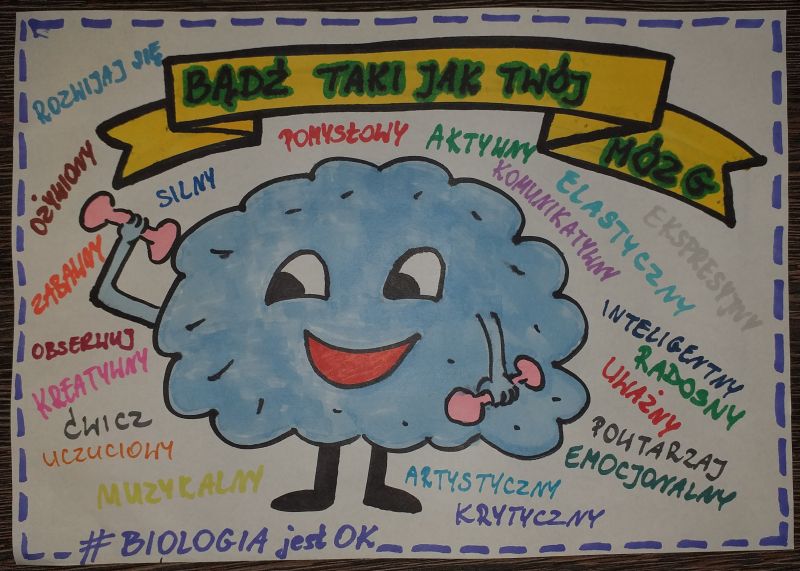 BĄDŹ TAKI JAK TWÓJ
MÓZG
ROZWIJAJ SIĘ
OŻYWIONY
SILNY
POMYSŁOWY
AKTYWNY
KOMUNIKATYWNY
ELASTYCZNY
EKSPRESYJNY
ZABAWNY
OBSERWUJ
KREATYWNY
ĆWICZ
UCZUCIOWY
MUZYKALNY
INTELIGENTNY
RADOSNY
UWAŻNY
POWTARZAJ
EMOCJONALNY
ARTYSTYCZNY
KRYTYCZNY
# BIOLOGIA jest OK